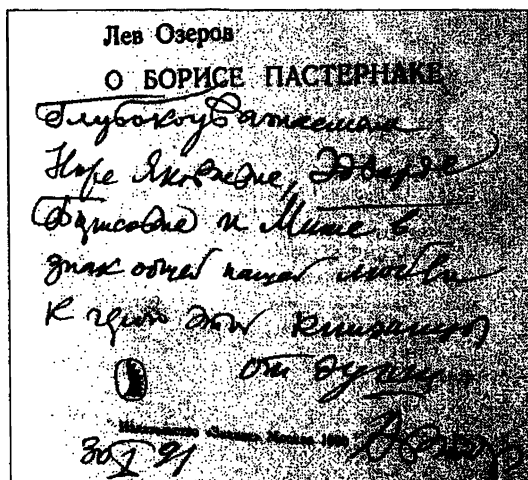 Лев Озеров
О БОРИСЕ ПАСТЕРНАКЕ
Глубокоуважаемым
Яковлевне, Эдварде
Борисовне и Мише в
знак общей нашей любви
к герою этой книжицы
от души
Знание Москва 1990
30 I 91